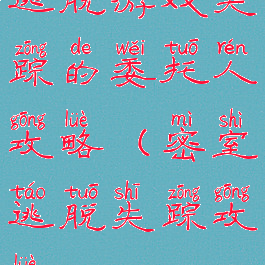 逃脱游戏失
zōng de wěi tuō rén
踪的委托人
gōng lüè mì shì
攻略（密室
táo tuō shī zōng gōng
逃脱失踪攻
lüè